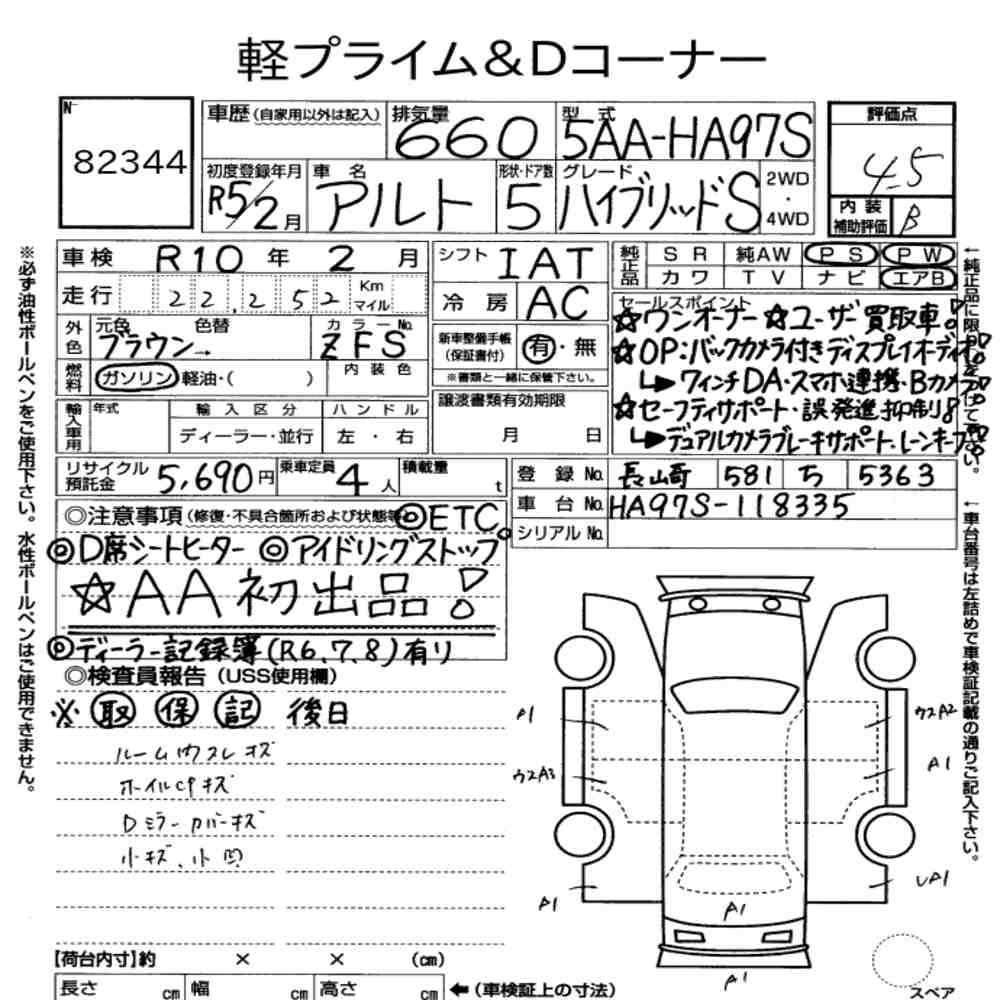 軽プライム&Dコーナー
No
82344
車歴(自家用以外は記入)
排気量
660
型式
5AA-HA97S
評価点
4.5
内装
補助評価
B
初度登録年月
R5/2月
車名
アルト
形状・ドア数
5
グレード
ハイブリッドS
2WD
・
4WD
車検 R10年 2月
走行 22,252 Km
マイル
外色
元色 色替
ブラウン→
カラーNo.
ZFS
燃料
ガソリン・軽油・( )
内装色
輸入車用
年式
輸入区分
ハンドル
ディーラー・並行
左・右
シフト IAT
冷房 AC
新車整備手帳
(保証書付)
有・無
※書類と一緒に保管下さい。
譲渡書類有効期限
月 日
純正品
SR 純AW PS PW
カワ TV ナビ エアB
セールスポイント
☆ワンオーナー☆ユーザー買取車!
☆OP:バックカメラ付きディスプレイオーディオ!
↳7インチDA・スマホ連携・Bカメラ!
☆セーフティサポート・誤発進抑制!
↳デュアルカメラブレーキサポート、レーンキープ!
リサイクル
預託金
5,690円
乗車定員
4人
積載量
t
登録No. 長崎 581 ち 5363
車台No. HA97S-118335
シリアルNo.
◎注意事項(修復・不具合箇所および状態等)◎ETC
◎D席シートヒーター ◎アイドリングストップ。
☆AA初出品!
◎ディーラー記録簿(R6,7,8)有り
◎検査員報告(USS使用欄)
※取 保 記 後日
ルーム内スレキズ
ホイルCPキズ
Dミラーカバーキズ
小キズ、小凹
A1
ウスA2
ウスA3
A1
A1
UA1
A1
A1
スペア
【荷台内寸】約 × × (cm)
長さ cm 幅 cm 高さ cm ←(車検証上の寸法)
※必ず油性ボールペンをご使用下さい。水性ボールペンはご使用できません。
←純正品に限り○を付けて下さい。
←車台番号は左詰めで車検証記載の通りご記入下さい。